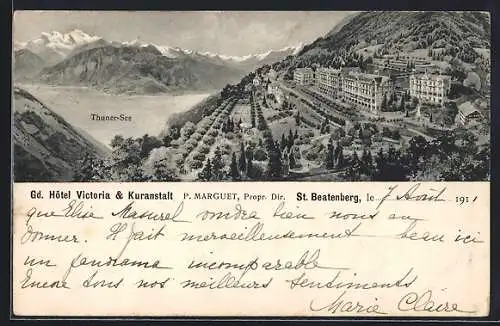 Thuner-See
Gd. Hôtel Victoria & Kuranstalt P. MARGUET, Propr. Dir. St. Beatenberg, le 7 Août 1911
que Elise Masurel voudra bien nous en
donner. Il fait merveilleusement beau ici
un panorama incomparable
Encore tous nos meilleurs sentiments
Marie Claire